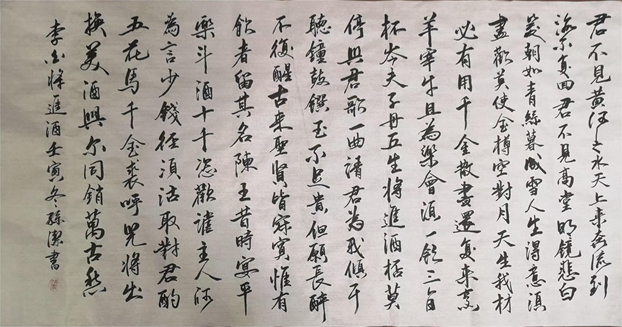 君不见黄河之水天上来奔流到
海不复回君不見高堂明镜悲白
髮朝如青絲暮成雪人生得意須
盡歡莫使金樽空對月天生我材
必有用千金散盡還复来烹
羊宰牛且為樂會須一飲三百
杯岑夫子丹丘生将進酒杯莫
停與君歌一曲請君为我傾耳
聽鐘鼓饌玉不足貴但願長醉
不復醒古来聖賢皆寂寞惟有
飲者留其名陳王昔時宴平
樂斗酒十千恣歡謔主人何
為言少錢径須沽取對君酌
五花馬千金裘呼兒將出
换美酒與尔同銷萬古愁
李白将進酒壬寅冬孫潔書